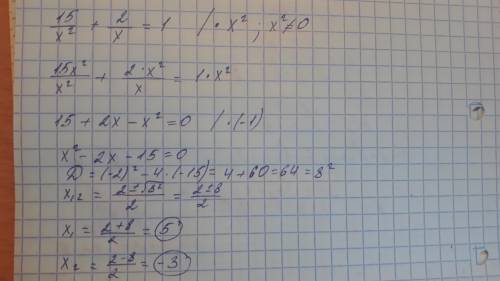 15/x² + 2/x = 1 / · x² ; x² ≠ 0
15x²/x² + 2·x²/x = 1·x²
15 + 2x − x² = 0 / ·(-1)
x² − 2x − 15 = 0
D = (-2)² − 4·(-15) = 4 + 60 = 64 = 8²
x₁,₂ = (2 ± √8²)/2 = (2 ± 8)/2
x₁ = (2+8)/2 = 5
x₂ = (2−8)/2 = -3